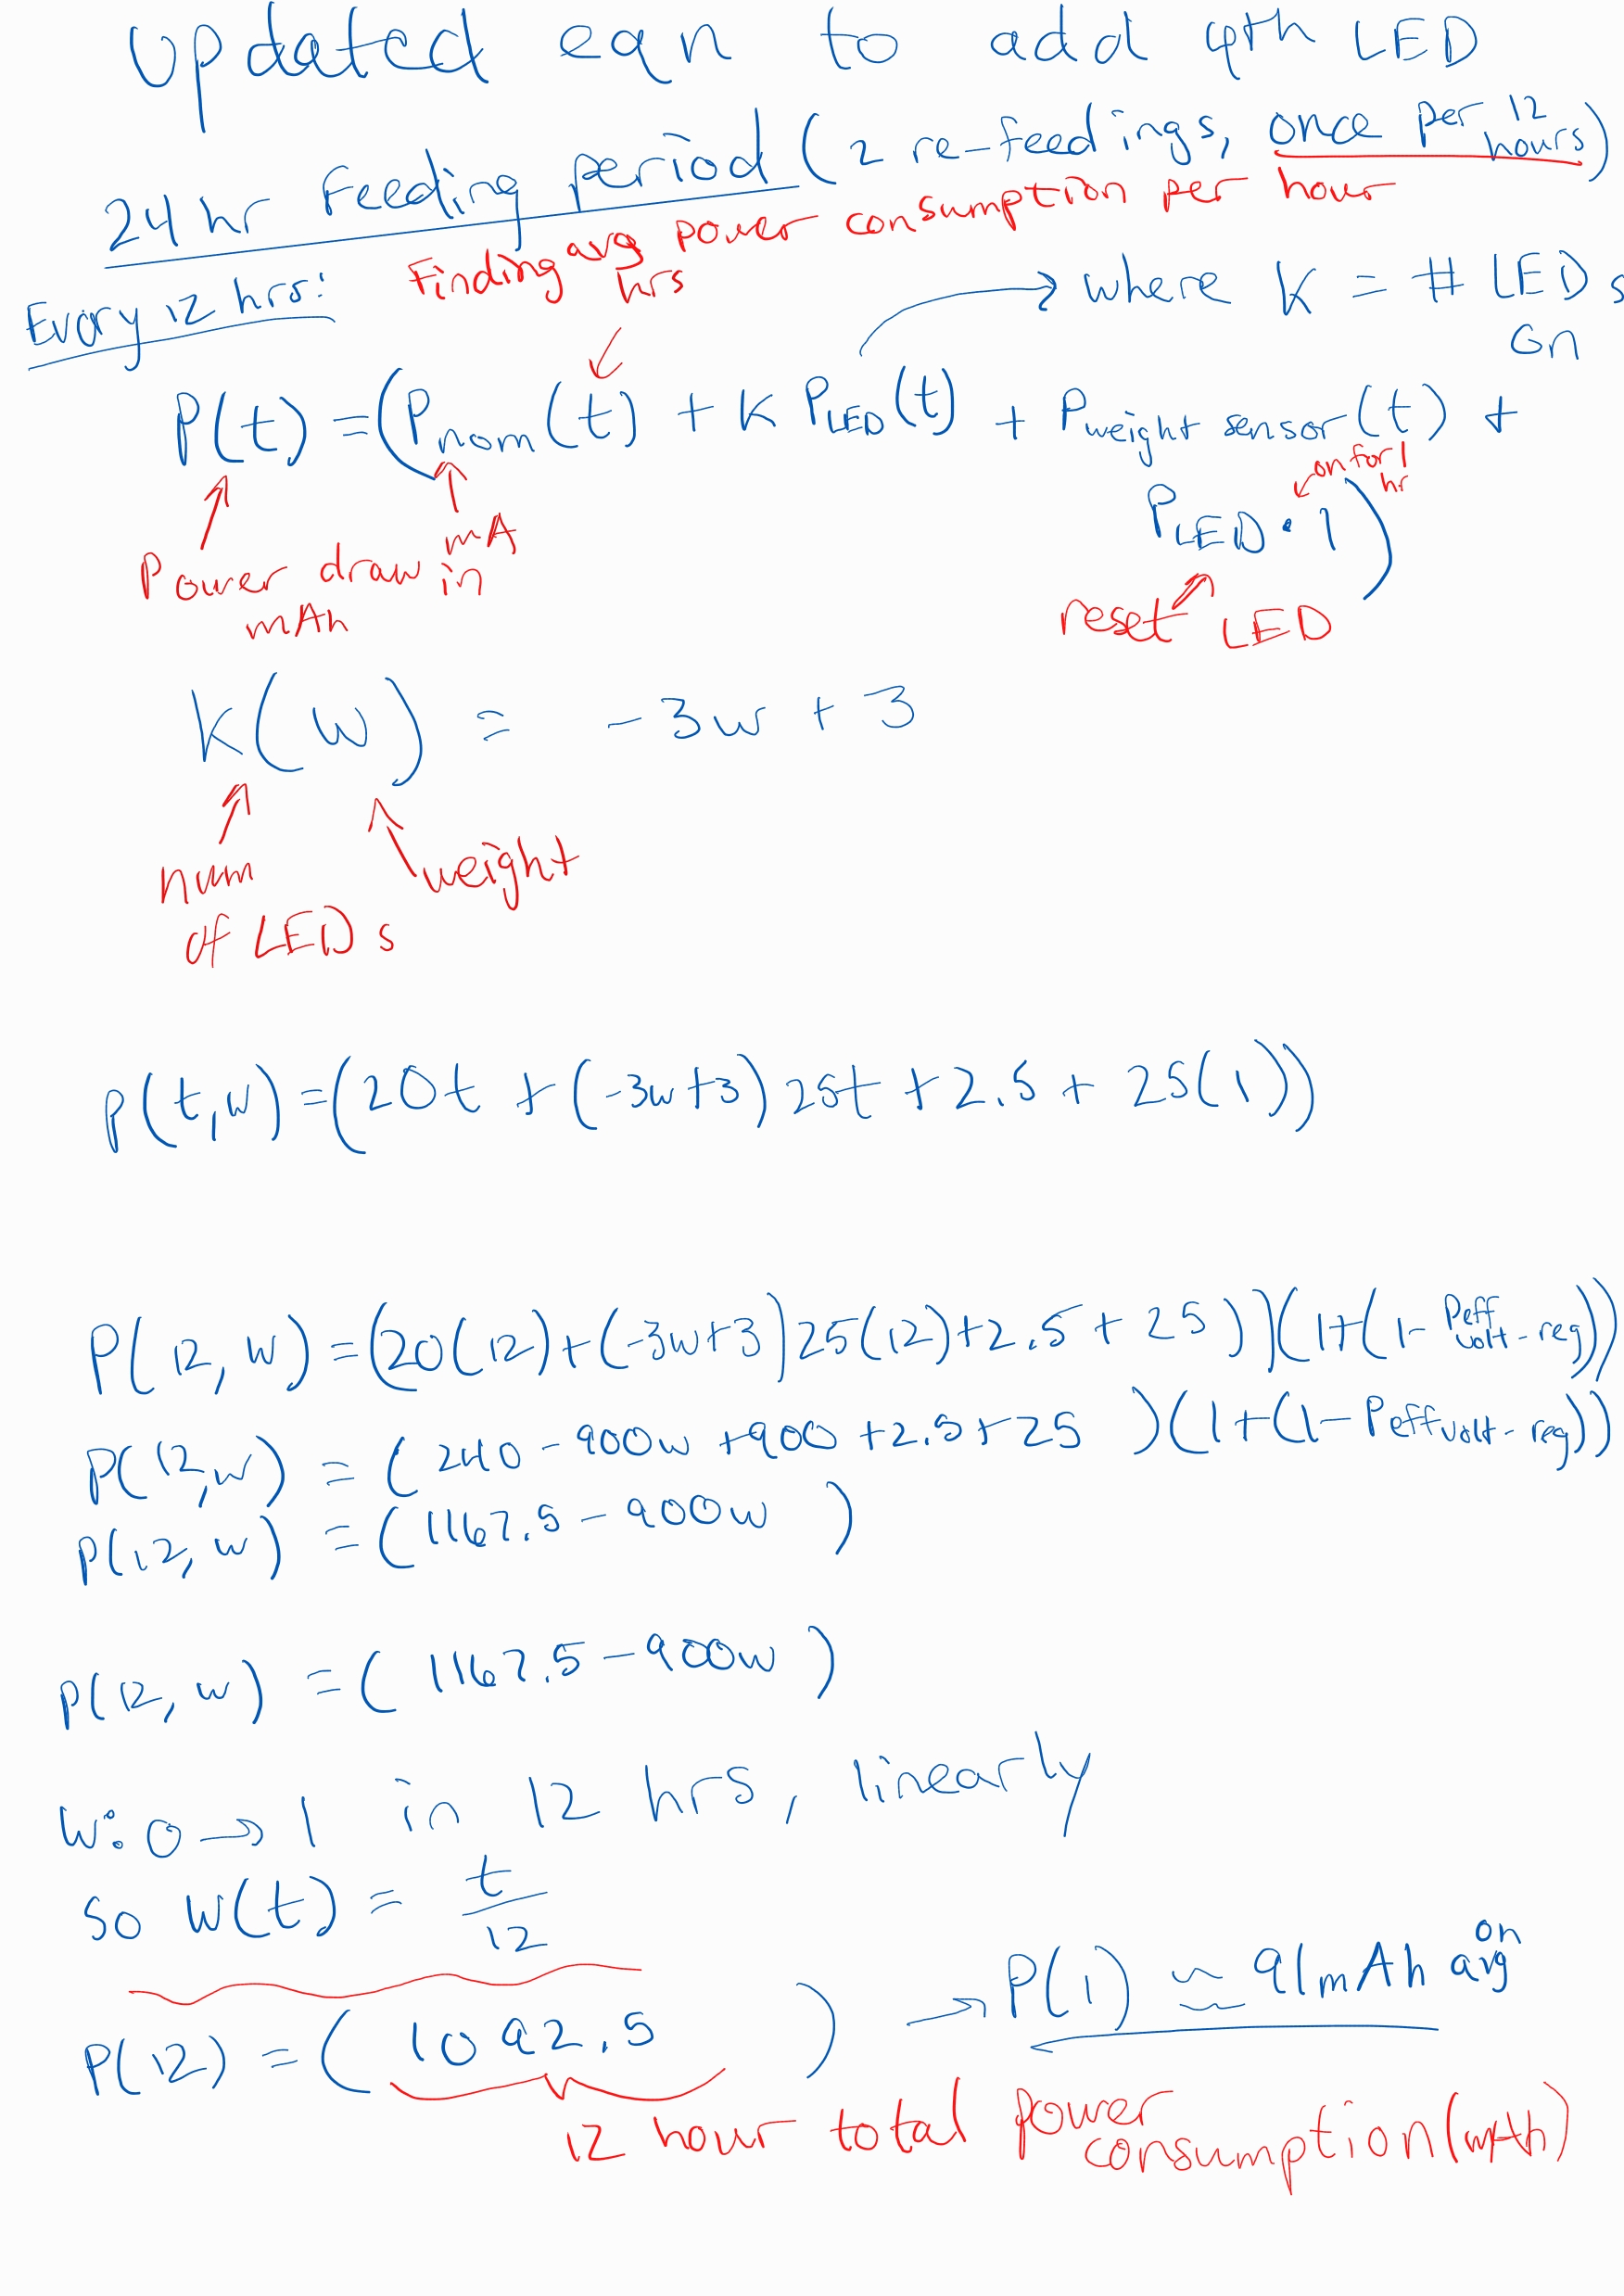 Updated eqn to add 4th LED
24 hr Feeding period (2 re-feedings, once per 12 hours)
Finding avg power consumption per hour
Every 12 hrs:
hrs
where K = # LEDs on
P(t) = (Pnom(t) + K PLED(t) + Pweight sensor(t) +
on for 1 hr
PLED · 1)
Power draw in mAh
mA
reset LED
K(w) = -3w + 3
num of LEDs
weight
P(t,w) = (20t + (-3w+3) 25t + 2.5 + 25(1))
P(12, w) = (20(12) + (-3w+3) 25(12) + 2.5 + 25))(1+(1- Peff volt-reg))
P(12,w) = (240 - 900w + 900 + 2.5 + 25 )(1+(1- Peff volt-reg))
P(12, w) = (1167.5 - 900w )
P(12, w) = ( 1167.5 - 900w )
W: 0 → 1 in 12 hrs, linearly
so W(t) = t/12
P(12) = ( 1092.5 ) → P(1) ≃ 91mAh on avg
12 hour total power consumption (mAh)